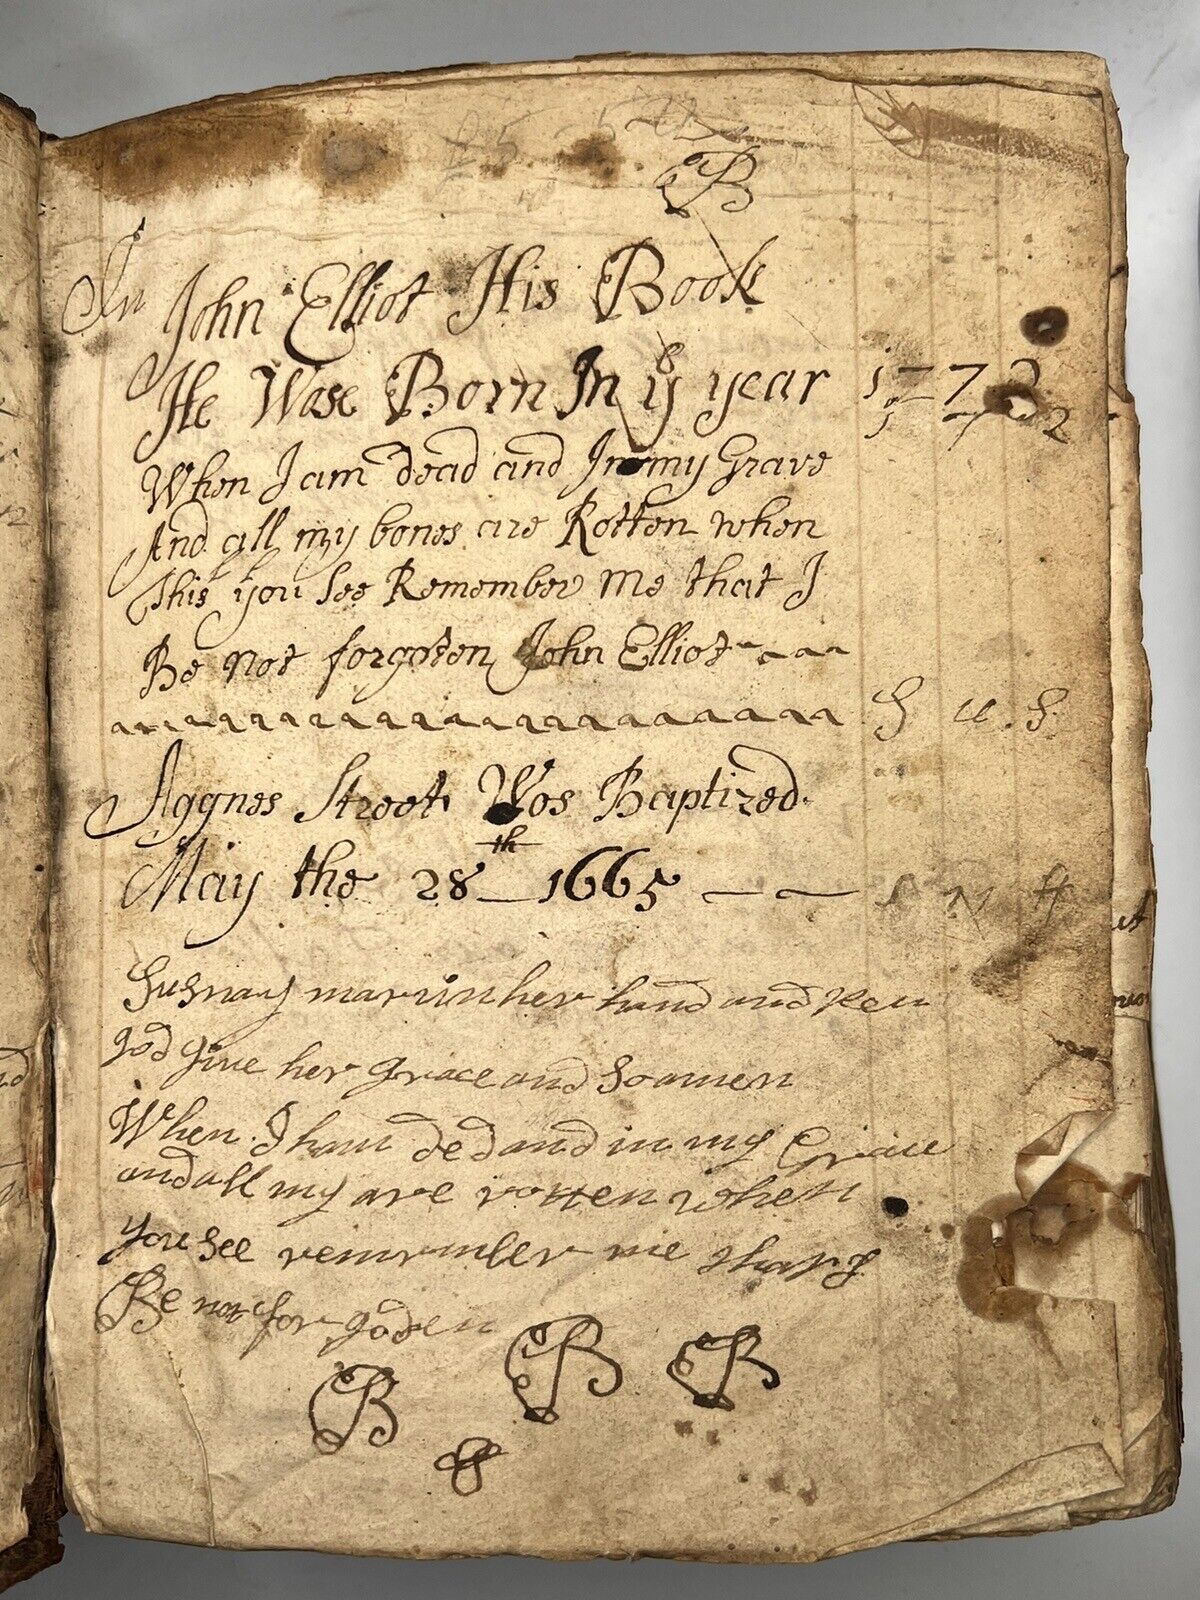 B
In
John Elliot His Book
He Wase Born In ye year 1772
1 7 2
When I am dead and In my Grave
And all my bones are Rotten when
This you See Remember me that I
Be not forgoten John Elliot
S u . S
Aggnes Street Wos Baptized
May the 28th 1665
S M H
marin her hand and Pen
god give her grace and So amen
When I ham ded and in my Grave
and all my are rotten when
you See rememember me that I
Be not for goden
B B B
8